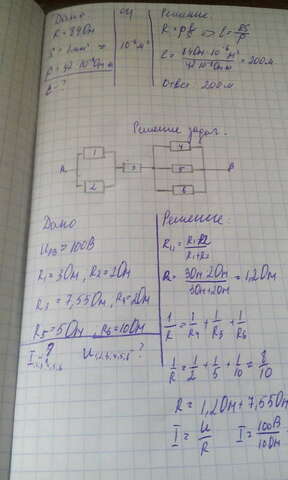 Дано
R = 84 Ом
S = 1 мм²
10⁻⁶ м²
l = ?
СИ
Решение:
R = ρ l/S => l = RS/ρ
l = 84 Ом · 10⁻⁶ м² / 42·10⁻⁸ Ом·м = 200 м.
Ответ: 200 м
Решение задач.
A
1
2
3
4
5
6
B
Дано
U_AB = 100В
R₁ = 3 Ом, R₂ = 2 Ом
R₃ = 7,55 Ом, R₄ = 2 Ом
R₅ = 5 Ом, R₆ = 10 Ом
U₁,₂,₃,₄,₅,₆ ?
Решение:
R₁,₂ = R₁·R₂ / R₁+R₂
R = 3 Ом · 2 Ом / 3 Ом + 2 Ом = 1,2 Ом
1/R = 1/R₄ + 1/R₅ + 1/R₆
1/R = 1/2 + 1/5 + 1/10 = 8/10
R = 1,2 Ом + 7,55 Ом
I = U/R I = 100В / 10 Ом